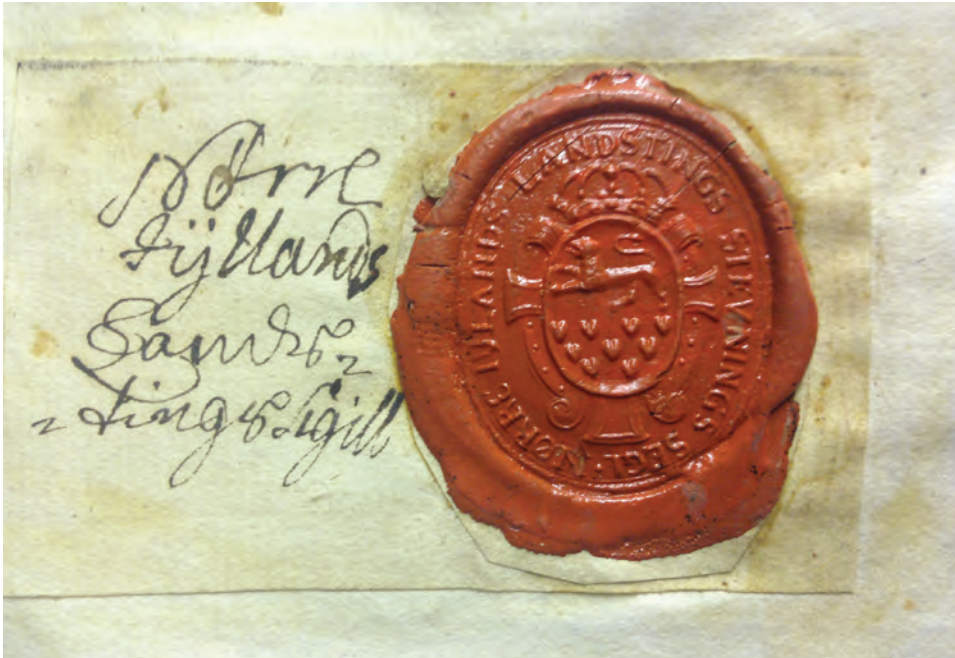 Nörre
Jÿllands
Lands-
-tings Sigill
NØRRE IVLANDS LANDSTINGS STEVNINGS SEGL